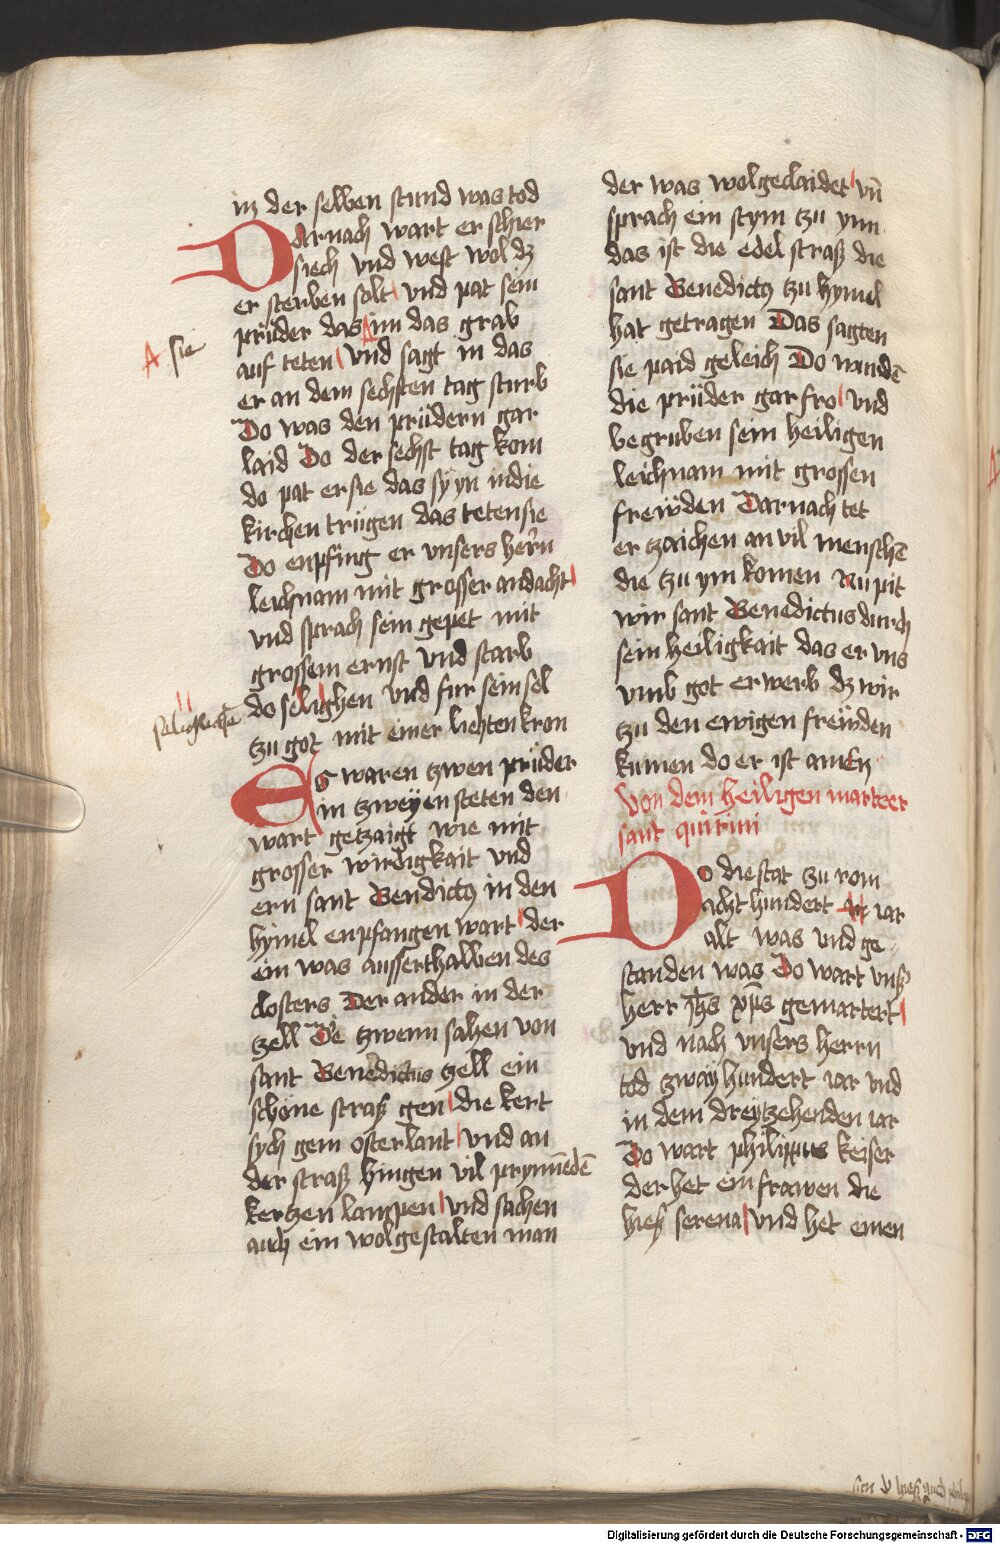 in der selben stund was tod
Darnach wart er schier
siech vnd west wol dz
er sterben solt vnd pat sein
prüder das im das grab
A sie
auf teten vnd sagt in das
er an dem sechsten tag sturb
Do was den prüdern gar
laid Do der sechst tag kom
do pat er sie das sy yn in die
kirchen trügen das teten sie
Do enpfing er vnsers herrn
leichnam mit grosser andacht
vnd sprach sein gepet mit
grossem ernst vnd starb
do selighen vnd fur sein sel
zu got mit einer liehten kron
Es waren zwen prüder
in zweyen steten den
wart getzaigt wie mit
grosser wirdigkait vnd
ern sant Bendictus in den
hymel enpfangen wart der
ein was ausserthalben des
closters Der ander in der
zell Die zwenn sahen von
sant Benedictus zell ein
schöne straß gen die kert
sych gem osterlant vnd an
der straß hingen vil prynnēdē
kertzen lampen vnd sachen
auch ein wolgestalten man
der was wolgeclaidet vn̄
sprach ein stym tzu ynn
das ist die edel straß die
sant Benedictus zu hymel
hat getragen Das sagten
sie paid geleich Do wurdē
die prüder gar fro vnd
begruben sein heiligen
leichnam mit grossen
frewden Darnach tet
er tzaichen an vil menschē
die tzu ym komen Nu pit
wir sant Benedictus durch
sein heiligkait das er vns
vmb got erwerb dz wir
zu den ewigen frewden
kumen do er ist amen
Von dem heiligen marterer
sant quirini
Do die stat zu rom
acht hundert iar
alt was vnd ge
standen was Do wart vnß
herr Jhs xp̄s gemartert
vnd nach vnsers herrn
tod zway hundert iar vnd
in dem dreytzehenden iar
Do wart philippus keiser
der het ein frawen die
hieß serena vnd het einen